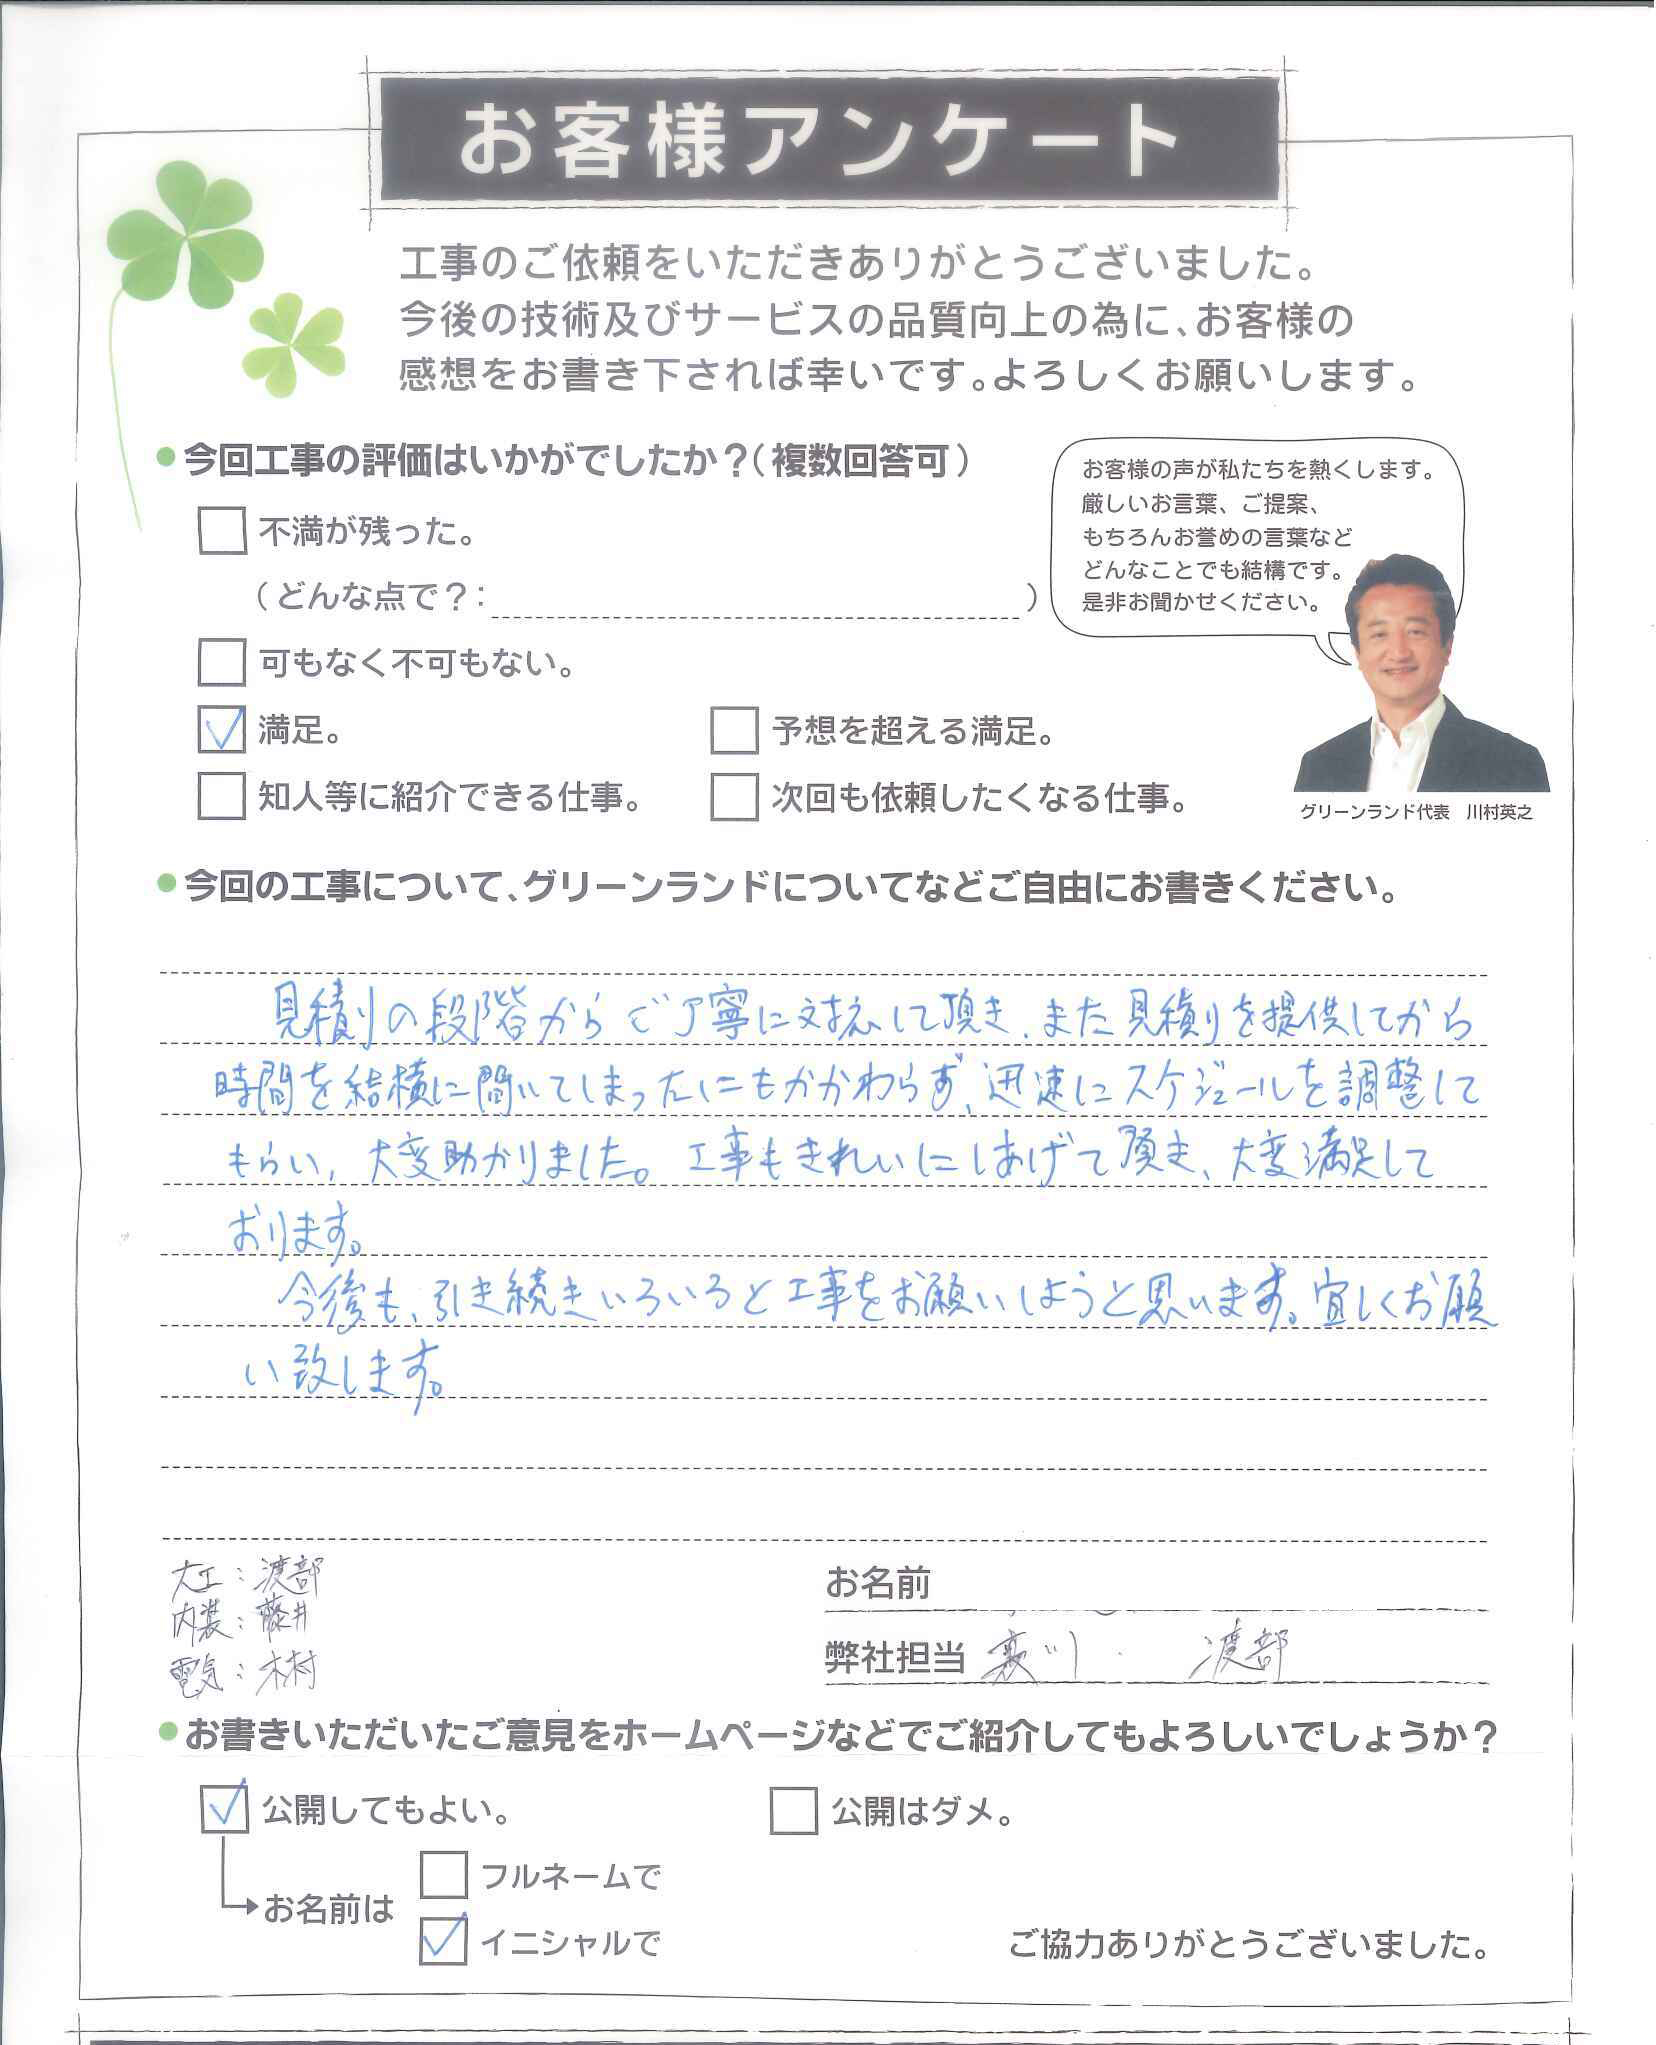 お客様アンケート
工事のご依頼をいただきありがとうございました。
今後の技術及びサービスの品質向上の為に、お客様の
感想をお書き下されば幸いです。よろしくお願いします。
今回工事の評価はいかがでしたか？（複数回答可）
不満が残った。
（どんな点で？：　）
可もなく不可もない。
満足。
予想を超える満足。
知人等に紹介できる仕事。
次回も依頼したくなる仕事。
お客様の声が私たちを熱くします。
厳しいお言葉、ご提案、
もちろんお誉めの言葉など
どんなことでも結構です。
是非お聞かせください。
グリーンランド代表　川村英之
今回の工事について、グリーンランドについてなどご自由にお書きください。
見積りの段階からご丁寧に対応して頂き、また見積りを提供してから
時間を結構に間いてしまったにもかかわらず、迅速にスケジュールを調整して
もらい、大変助かりました。工事もきれいにしあげて頂き、大変満足して
おります。
今後も、引き続きいろいろと工事をお願いしようと思います。宜しくお願
い致します。
大工：渡部
内装：藤井
電気：木村
お名前
弊社担当　川・渡部
お書きいただいたご意見をホームページなどでご紹介してもよろしいでしょうか？
公開してもよい。
公開はダメ。
お名前は
フルネームで
イニシャルで
ご協力ありがとうございました。